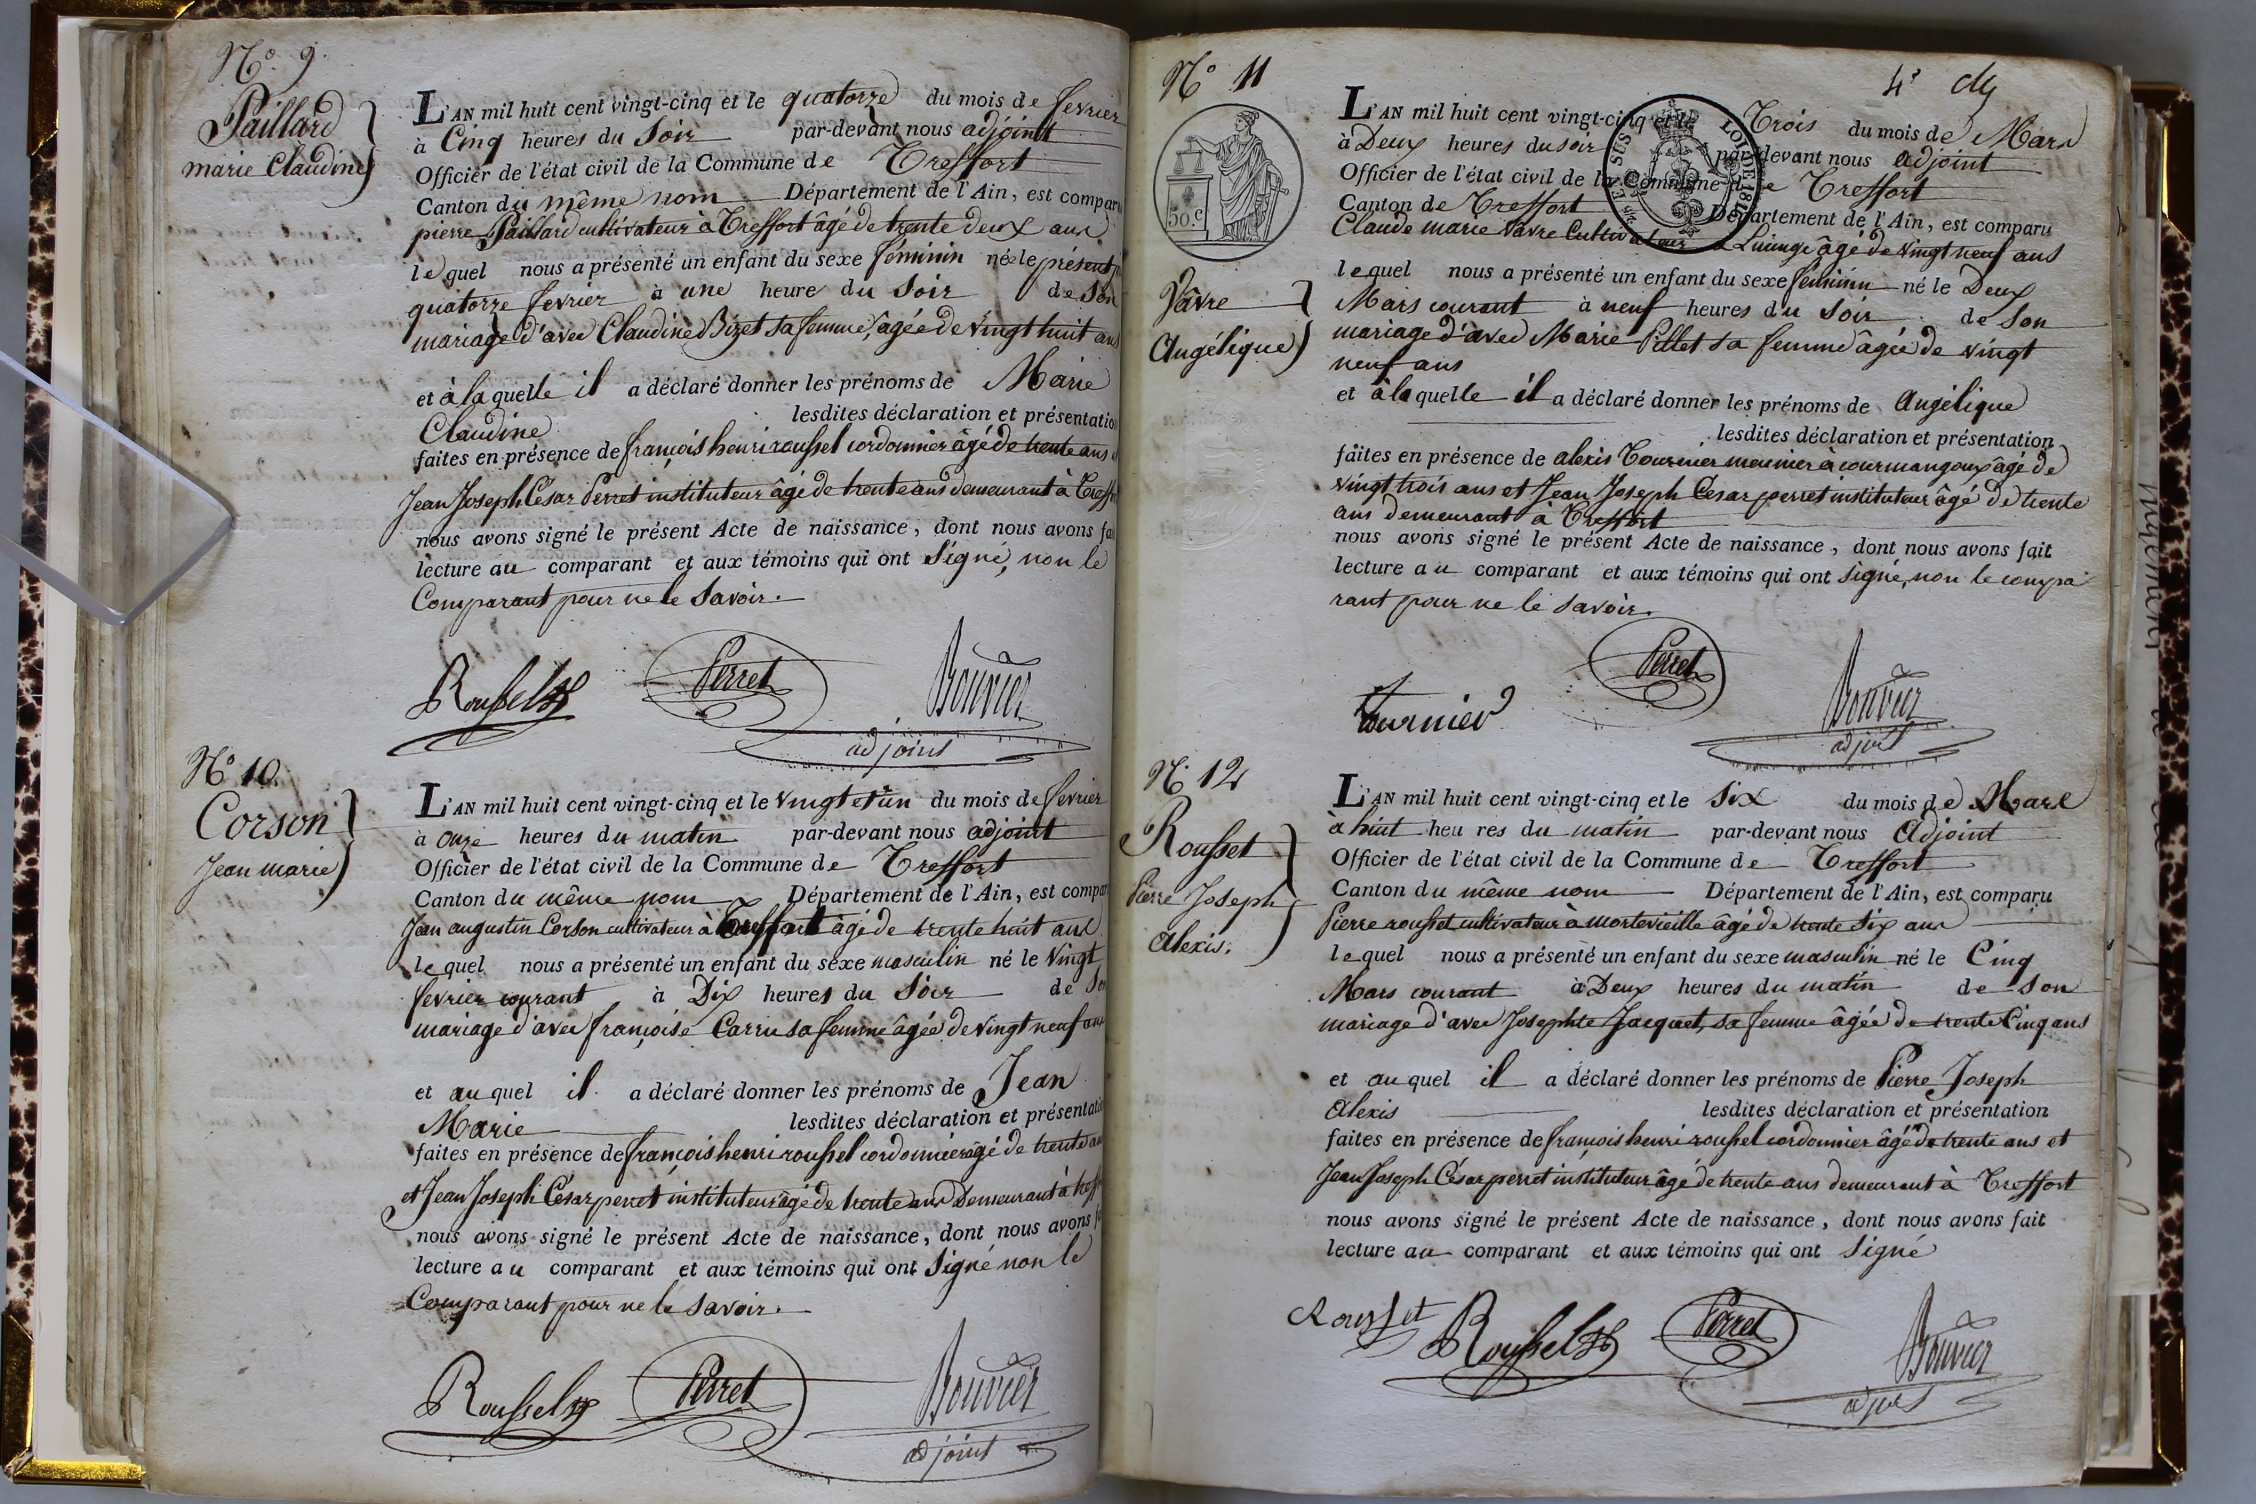 N.° 9.
Paillard
marie Claudine
L'AN mil huit cent vingt-cinq et le quatorze du mois de fevrier
à Cinq heures du Soir par-devant nous adjoint
Officier de l'état civil de la Commune de Treffort
Canton du même nom Département de l'Ain, est comparu
pierre Paillard cultivateur à Treffort âgé de trente deux ans
lequel nous a présenté un enfant du sexe féminin née le présent
quatorze fevrier à une heure du Soir de Son
mariage d'avec Claudine Bizet sa femme, âgée de vingt huit ans
et à laquelle il a déclaré donner les prénoms de Marie
Claudine lesdites déclaration et présentation
faites en présence de françois henri roussel cordonnier âgé de trente ans
Jean Joseph César Perret instituteur âgé de trente ans demeurant à Treff
nous avons signé le présent Acte de naissance, dont nous avons fa
lecture au comparant et aux témoins qui ont Signé, non le
Comparant pour ne le Savoir.
Roussel
Perret
Bouvier
adjoint
N° 10.
Corson
Jean marie
L'AN mil huit cent vingt-cinq et le vingt et un du mois de fevrier
à onze heures du matin par-devant nous adjoint
Officier de l'état civil de la Commune de Treffort
Canton du même nom Département de l'Ain, est compar
Jean augustin Corson cultivateur à Treffort âgé de trente huit ans
lequel nous a présenté un enfant du sexe masculin né le Vingt
fevrier courant à Dix heures du Soir de So
mariage d'avec françoise Carru sa femme âgée de vingt neuf ans
et auquel il a déclaré donner les prénoms de Jean
Marie lesdites déclaration et présentati
faites en présence de françois henri roussel cordonnier âgé de trente ans
et Jean Joseph César perret instituteur âgé de trente ans Demeurant à treff
nous avons signé le présent Acte de naissance, dont nous avons f
lecture au comparant et aux témoins qui ont Signé non le
Comparant pour ne le Savoir.
Roussel
Perret
Bouvier
adjoint
4°
N° 11
50.c
LOI DE 1816
Vâvre
Angélique
L'AN mil huit cent vingt-cinq et le Trois du mois de Mars
à Deux heures du soir par-devant nous adjoint
Officier de l'état civil de la Commune de Treffort
Canton de Treffort Département de l'Ain, est comparu
Claude marie vâvre Cultivateur à âgé de vingt neuf ans
lequel nous a présenté un enfant du sexe féminin né le Deux
Mars courant à neuf heures du Soir de Son
mariage d'avec Marie Pillet sa femme âgée de vingt
neuf ans
et à laquelle il a déclaré donner les prénoms de Angélique
lesdites déclaration et présentation
faites en présence de alexis Tournier meunier à courmangoux âgé de
vingt trois ans et Jean Joseph César perret instituteur âgé de trente
ans demeurant à Treffort
nous avons signé le présent Acte de naissance, dont nous avons fait
lecture au comparant et aux témoins qui ont signé, non le compa
rant pour ne le savoir.
Tournier
Perret
Bouvier
adjoint
N.° 12
Rousset
Pierre Joseph
Alexis.
L'AN mil huit cent vingt-cinq et le Six du mois de Mars
à huit heures du matin par-devant nous Adjoint
Officier de l'état civil de la Commune de Treffort
Canton du même nom Département de l'Ain, est comparu
Pierre rousset cultivateur à Montevieille âgé de trente Six ans
lequel nous a présenté un enfant du sexe masculin né le Cinq
Mars courant à Deux heures du matin de Son
mariage d'avec Josephte Jacquet, sa femme âgée de trente Cinq ans
et auquel il a déclaré donner les prénoms de Pierre Joseph
Alexis lesdites déclaration et présentation
faites en présence de françois henri roussel cordonnier âgé de trente ans et
Jean Joseph César perret instituteur âgé de trente ans demeurant à Treffort
nous avons signé le présent Acte de naissance, dont nous avons fait
lecture au comparant et aux témoins qui ont Signé
Rousset
Roussel
Perret
Bouvier
adjoint